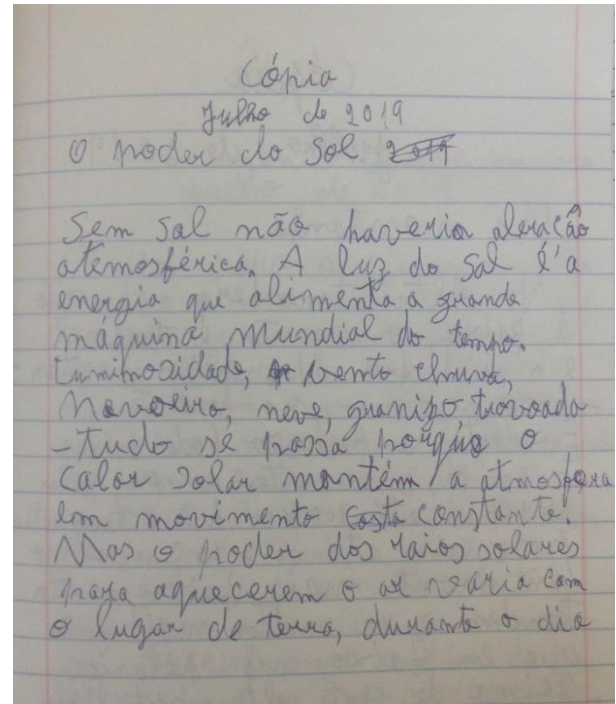 Cópia
Julho de 2019
O poder do Sol 2019
Sem Sol não haveria aleração
atemosférica. A luz do Sol é a
energia que alimenta a grande
máquina mundial do tempo.
Luminosidade, vento chuva,
Nevoeiro, neve, granizo trovoada
-tudo se passa porquê o
Calor solar mantém a atmosfera
em movimento constante.
Mas o poder dos raios solares
para aquecerem o ar varia com
o lugar de terra, durante o dia